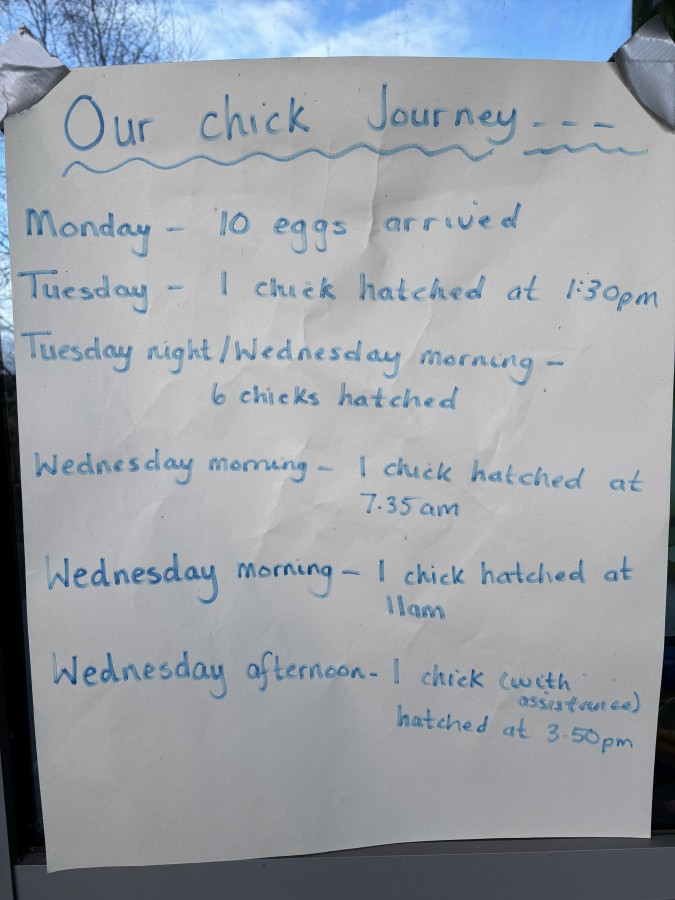 Our chick Journey ---
Monday - 10 eggs arrived
Tuesday - 1 chick hatched at 1:30pm
Tuesday night/Wednesday morning -
6 chicks hatched
Wednesday morning - 1 chick hatched at
7.35am
Wednesday morning - 1 chick hatched at
11am
Wednesday afternoon - 1 chick (with
assistance)
hatched at 3.50pm